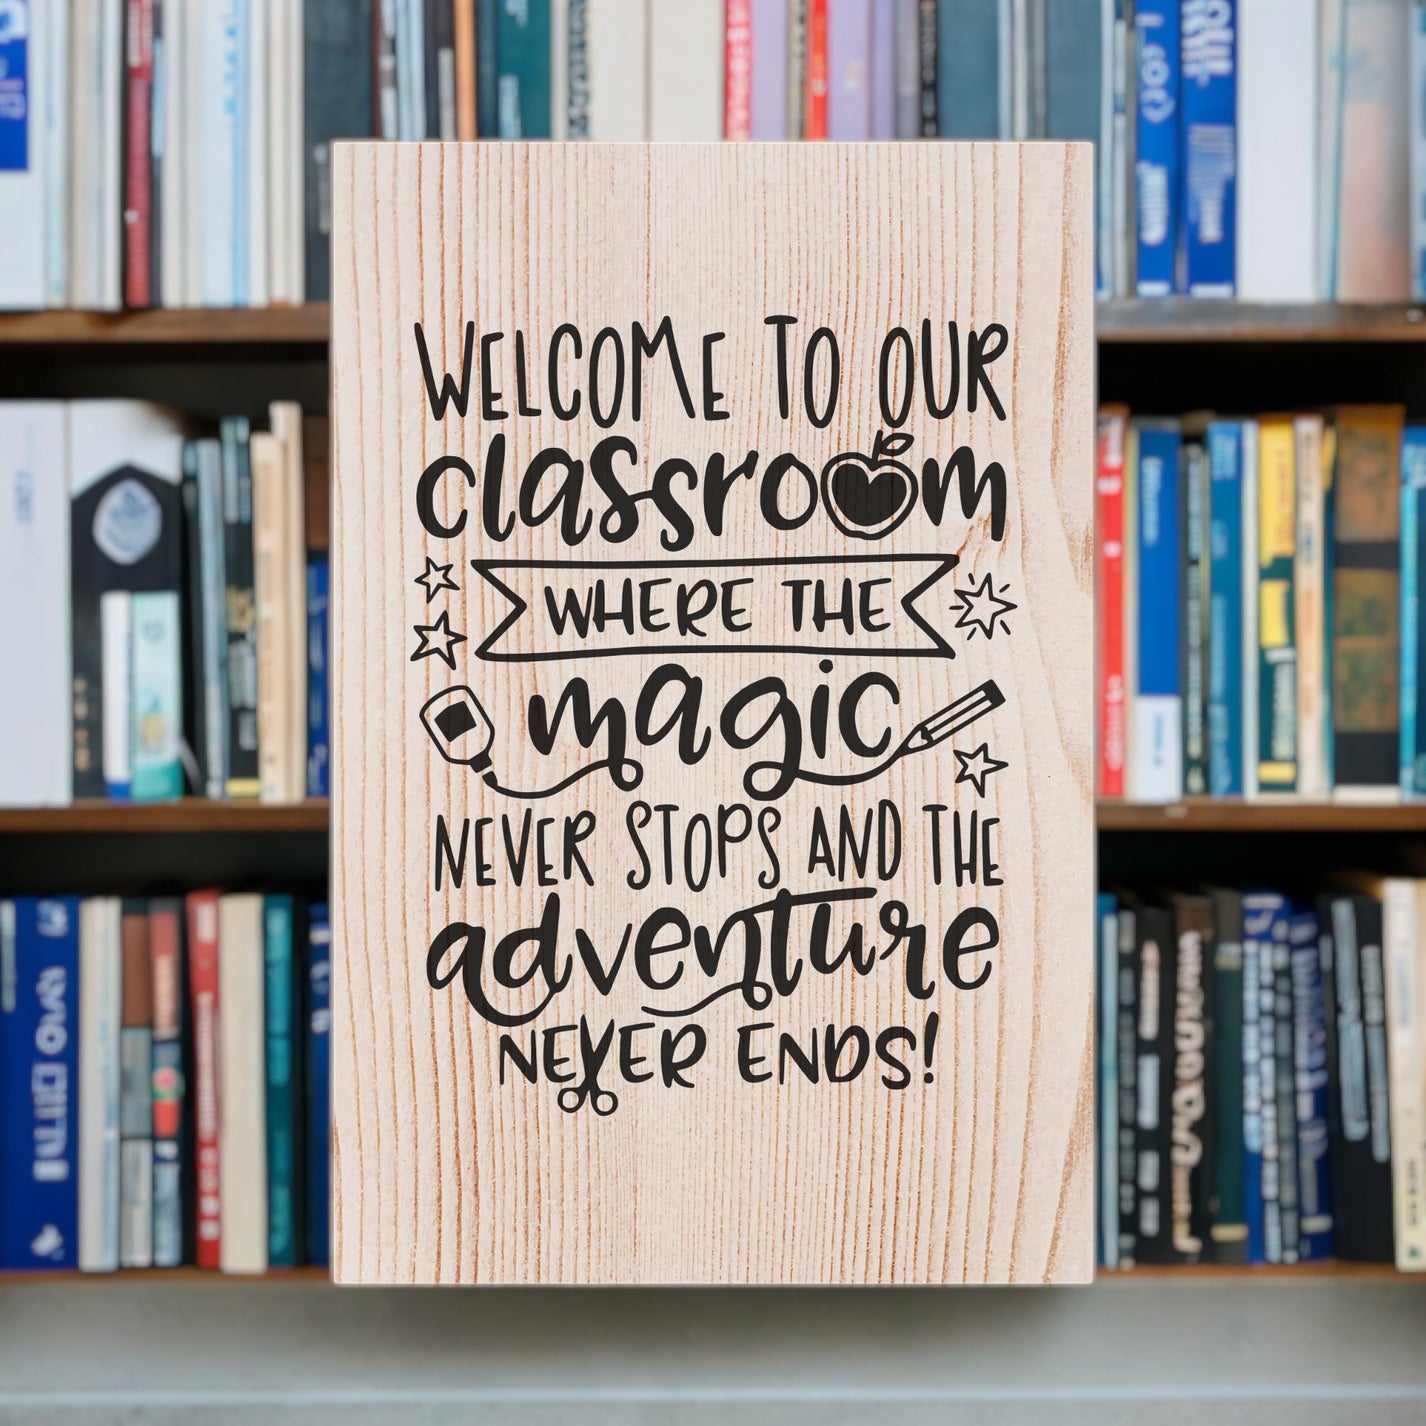 WELCOME TO OUR
classroom
WHERE THE
magic
NEVER STOPS AND THE
adventure
NEVER ENDS!